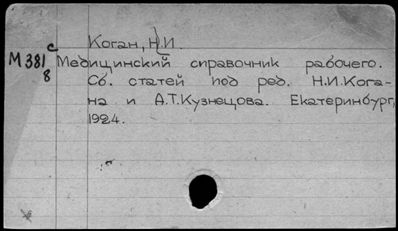 Коган, Н.И.
М 381 с 8
Медицинский справочник рабочего.
Сб. статей под ред. Н.И.Кога-
на и А.Т.Кузнецова. Екатеринбург,
1924.